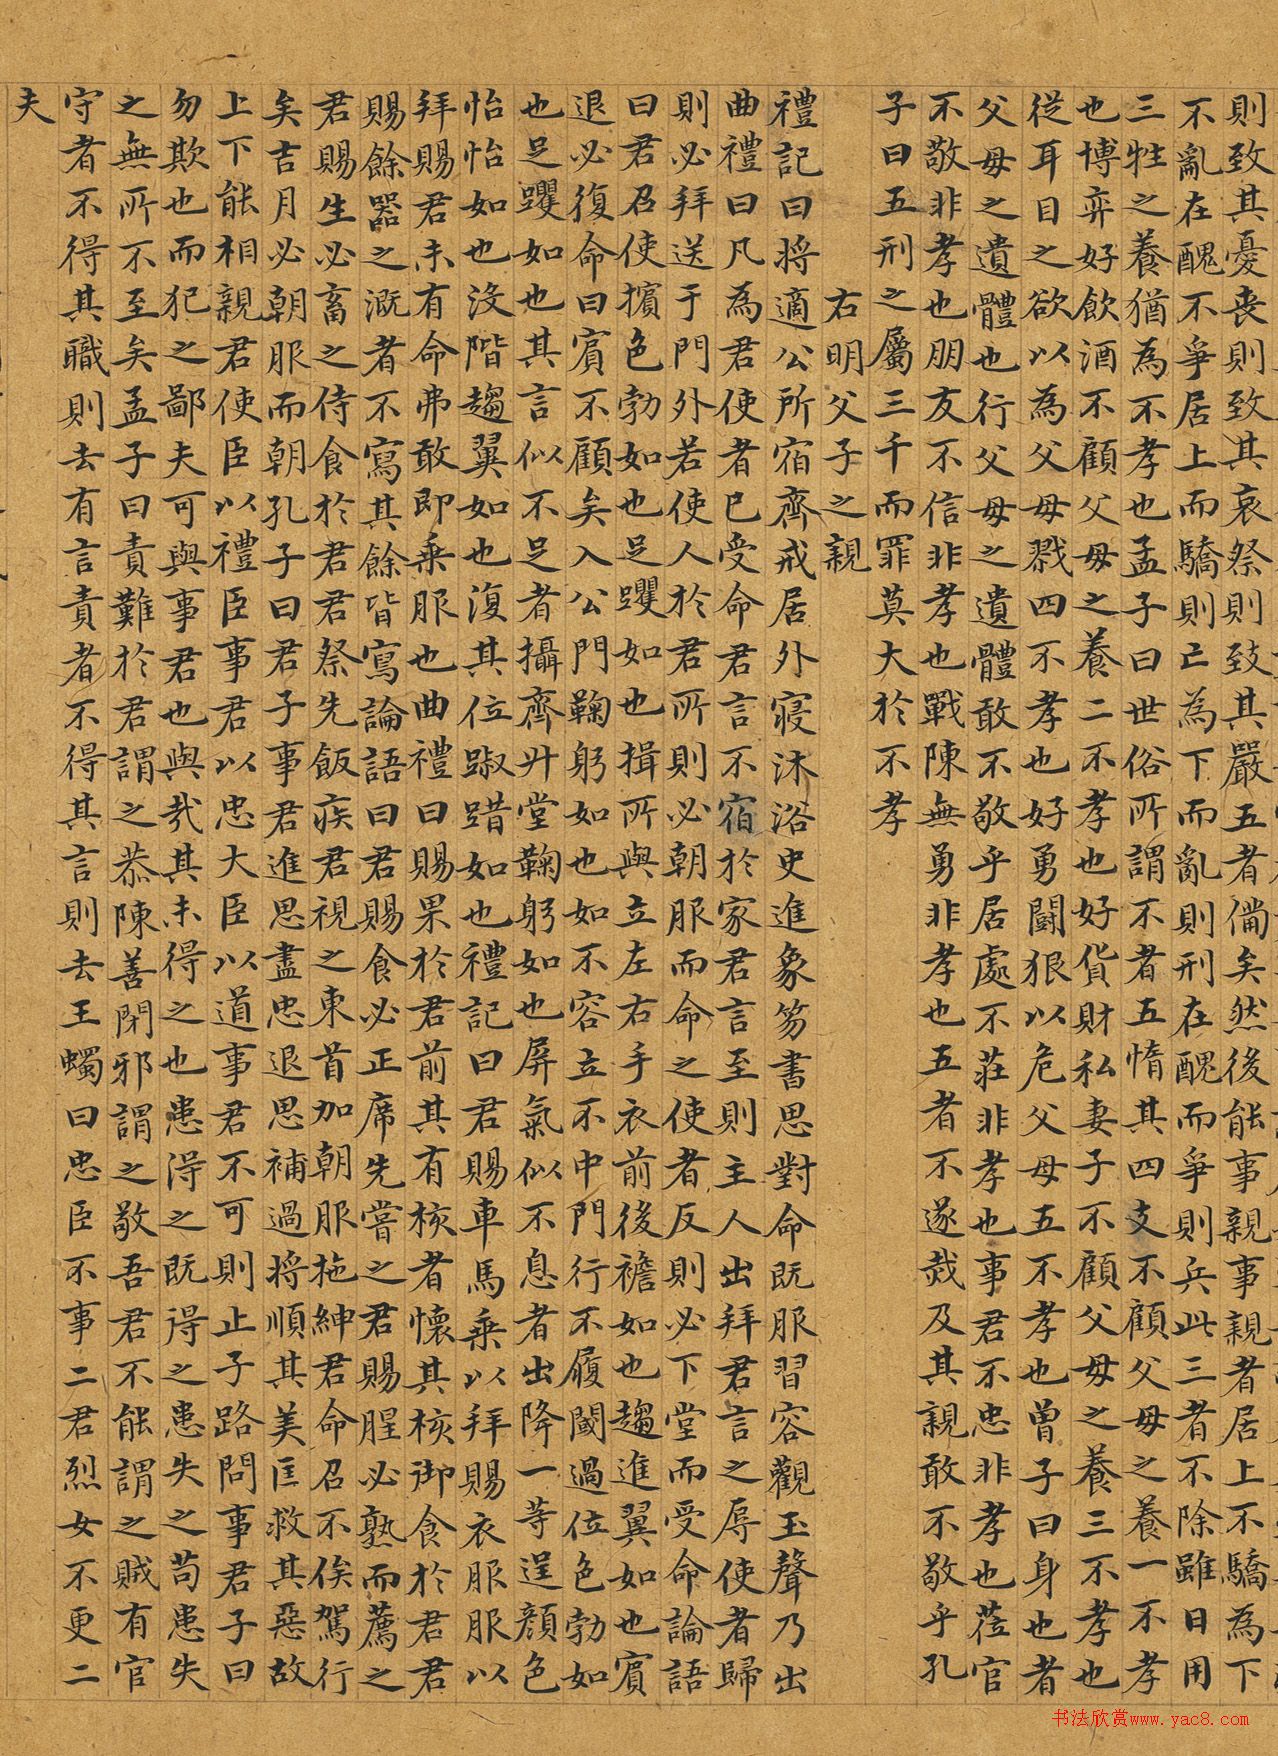 則致其憂喪則致其哀祭則致其嚴五者備矣然後能事親事親者居上不驕為下
不亂在醜不爭居上而驕則亡為下而亂則刑在醜而爭則兵此三者不除雖日用
三牲之養猶為不孝也孟子曰世俗所謂不者五惰其四支不顧父母之養一不孝
也博弈好飲酒不顧父母之養二不孝也好貨財私妻子不顧父母之養三不孝也
從耳目之欲以為父母戮四不孝也好勇鬪狠以危父母五不孝也曾子曰身也者
父母之遺體也行父母之遺體敢不敬乎居處不莊非孝也事君不忠非孝也莅官
不敬非孝也朋友不信非孝也戰陳無勇非孝也五者不遂烖及其親敢不敬乎孔
子曰五刑之屬三千而罪莫大於不孝
右明父子之親
禮記曰將適公所宿齊戒居外寢沐浴史進象笏書思對命既服習容觀玉聲乃出
曲禮曰凡為君使者已受命君言不宿於家君言至則主人出拜君言之辱使者歸
則必拜送于門外若使人於君所則必朝服而命之使者反則必下堂而受命論語
曰君召使擯色勃如也足躩如也揖所與立左右手衣前後襜如也趨進翼如也賓
退必復命曰賓不顧矣入公門鞠躬如也如不容立不中門行不履閾過位色勃如
也足躩如也其言似不足者攝齊升堂鞠躬如也屏氣似不息者出降一等逞顏色
怡怡如也沒階趨翼如也復其位踧踖如也禮記曰君賜車馬乘以拜賜衣服服以
拜賜君未有命弗敢即乘服也曲禮曰賜果於君前其有核者懷其核御食於君君
賜餘器之溉者不寫其餘皆寫論語曰君賜食必正席先嘗之君賜腥必熟而薦之
君賜生必畜之侍食於君君祭先飯疾君視之東首加朝服拖紳君命召不俟駕行
矣吉月必朝服而朝孔子曰君子事君進思盡忠退思補過將順其美匡救其惡故
上下能相親君使臣以禮臣事君以忠大臣以道事君不可則止子路問事君子曰
勿欺也而犯之鄙夫可與事君也與哉其未得之也患得之既得之患失之苟患失
之無所不至矣孟子曰責難於君謂之恭陳善閉邪謂之敬吾君不能謂之賊有官
守者不得其職則去有言責者不得其言則去王蠋曰忠臣不事二君烈女不更二
夫
书法欣赏www.yac8.com